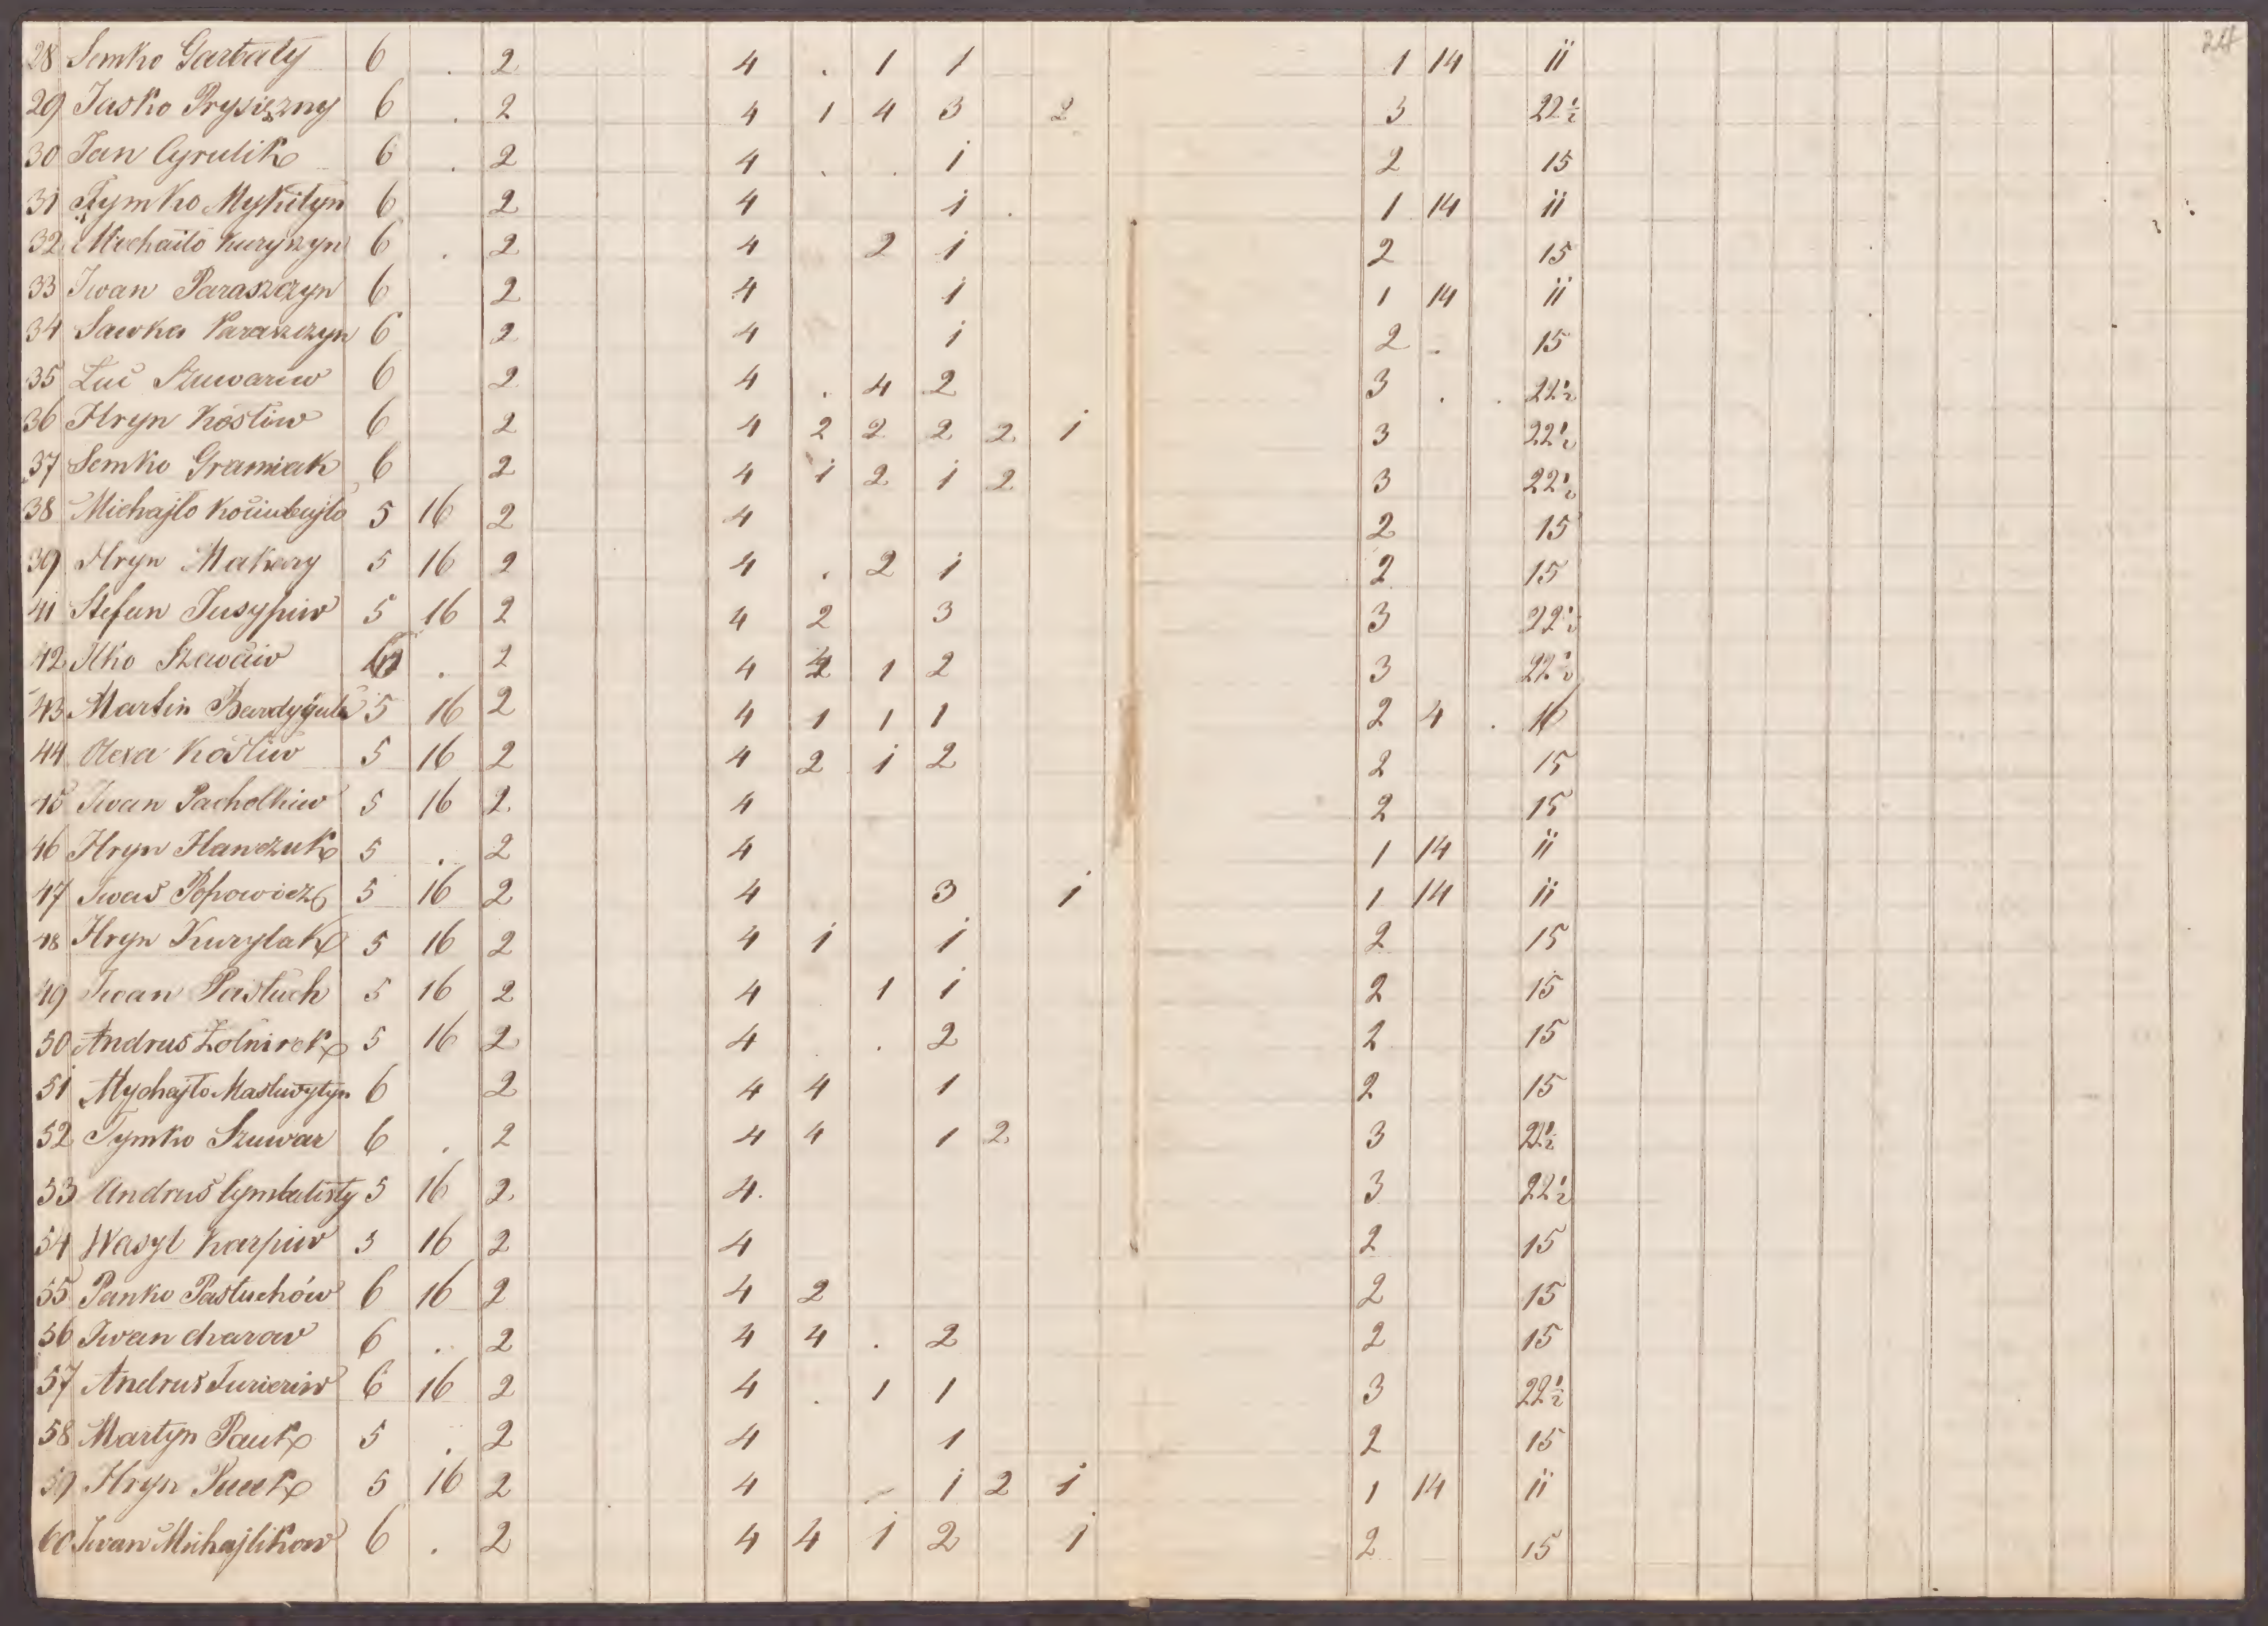 28 Semko Garbaty 6 . 2 4 . 1 1 1 14 ii
29 Jasko Prysiężny 6 . 2 4 1 4 3 2 3 22½
30 Jan Cyrulik 6 . 2 4 . . i 2 15
31 Tymko Mykityn 6 2 4 i . 1 14 ii
32 Michaiło Kuryszyn 6 . 2 4 2 i 2 15
33 Iwan Paraszczyn 6 2 4 i 1 14 ii
34 Sawka Paraszczyn 6 2 4 i 2 . 15
35 Łuć Szuwariw 6 2 4 . 4 2 3 . . 22½
36 Hryn Kostiw 6 2 4 2 2 2 2 i 3 22½
37 Semko Gramiak 6 2 4 i 2 i 2 3 22½
38 Michajło 5 16 2 4 2 15
39 Hryn Makary 5 16 2 4 . 2 i 2 15
41 Stefan Jusypiw 5 16 2 4 2 3 3 22½
42 Ilko 6 . 2 4 2 1 2 3 22½
43 Martin 5 16 2 4 1 1 1 2 4 . 16
44 Olexa Kostiw 5 16 2 4 2 i 2 2 15
45 Iwan Pachołkiw 5 16 2 4 2 15
46 Hryn Hawczuk 5 . 2 4 1 14 ii
47 Iwaś Popowicz 5 16 2 4 3 i 1 14 ii
48 Hryn Kurylak 5 16 2 4 i i 2 15
49 Iwan Pastuch 5 16 2 4 1 i 2 15
50 Andrus Żołnirek 5 16 2 4 . 2 2 15
51 Mychajło 6 2 4 4 1 2 15
52 Tymko Szuwar 6 . 2 4 4 1 2 3 22½
53 Andruś Cymbalisty 5 16 2 4 3 22½
54 Wasyl Karpiw 5 16 2 4 2 15
55 Panko Pastuchów 6 16 2 4 2 2 15
56 Iwan 6 . 2 4 4 . 2 2 15
57 Andrus 6 16 2 4 . 1 1 3 22½
58 Martyn Pauk 5 . 2 4 1 2 15
59 Hryn 5 16 2 4 i 2 i 1 14 ii
60 Iwan Michajlikow 6 . 2 4 4 i 2 i 2 15